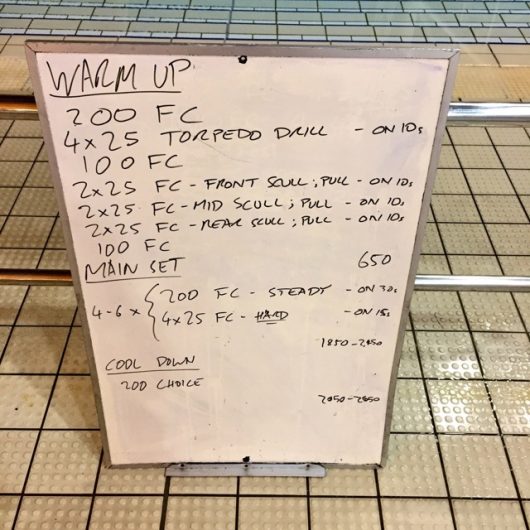 WARM UP
200 FC
4x25 TORPEDO DRILL - ON 10s
100 FC
2x25 FC - FRONT SCULL; PULL - ON 10s
2x25 FC - MID SCULL; PULL - ON 10s
2x25 FC - REAR SCULL; PULL - ON 10s
100 FC
650
MAIN SET
4-6 x { 200 FC - STEADY - ON 30s
4x25 FC - HARD - ON 15s
1850-2450
COOL DOWN
200 CHOICE
2050-2650